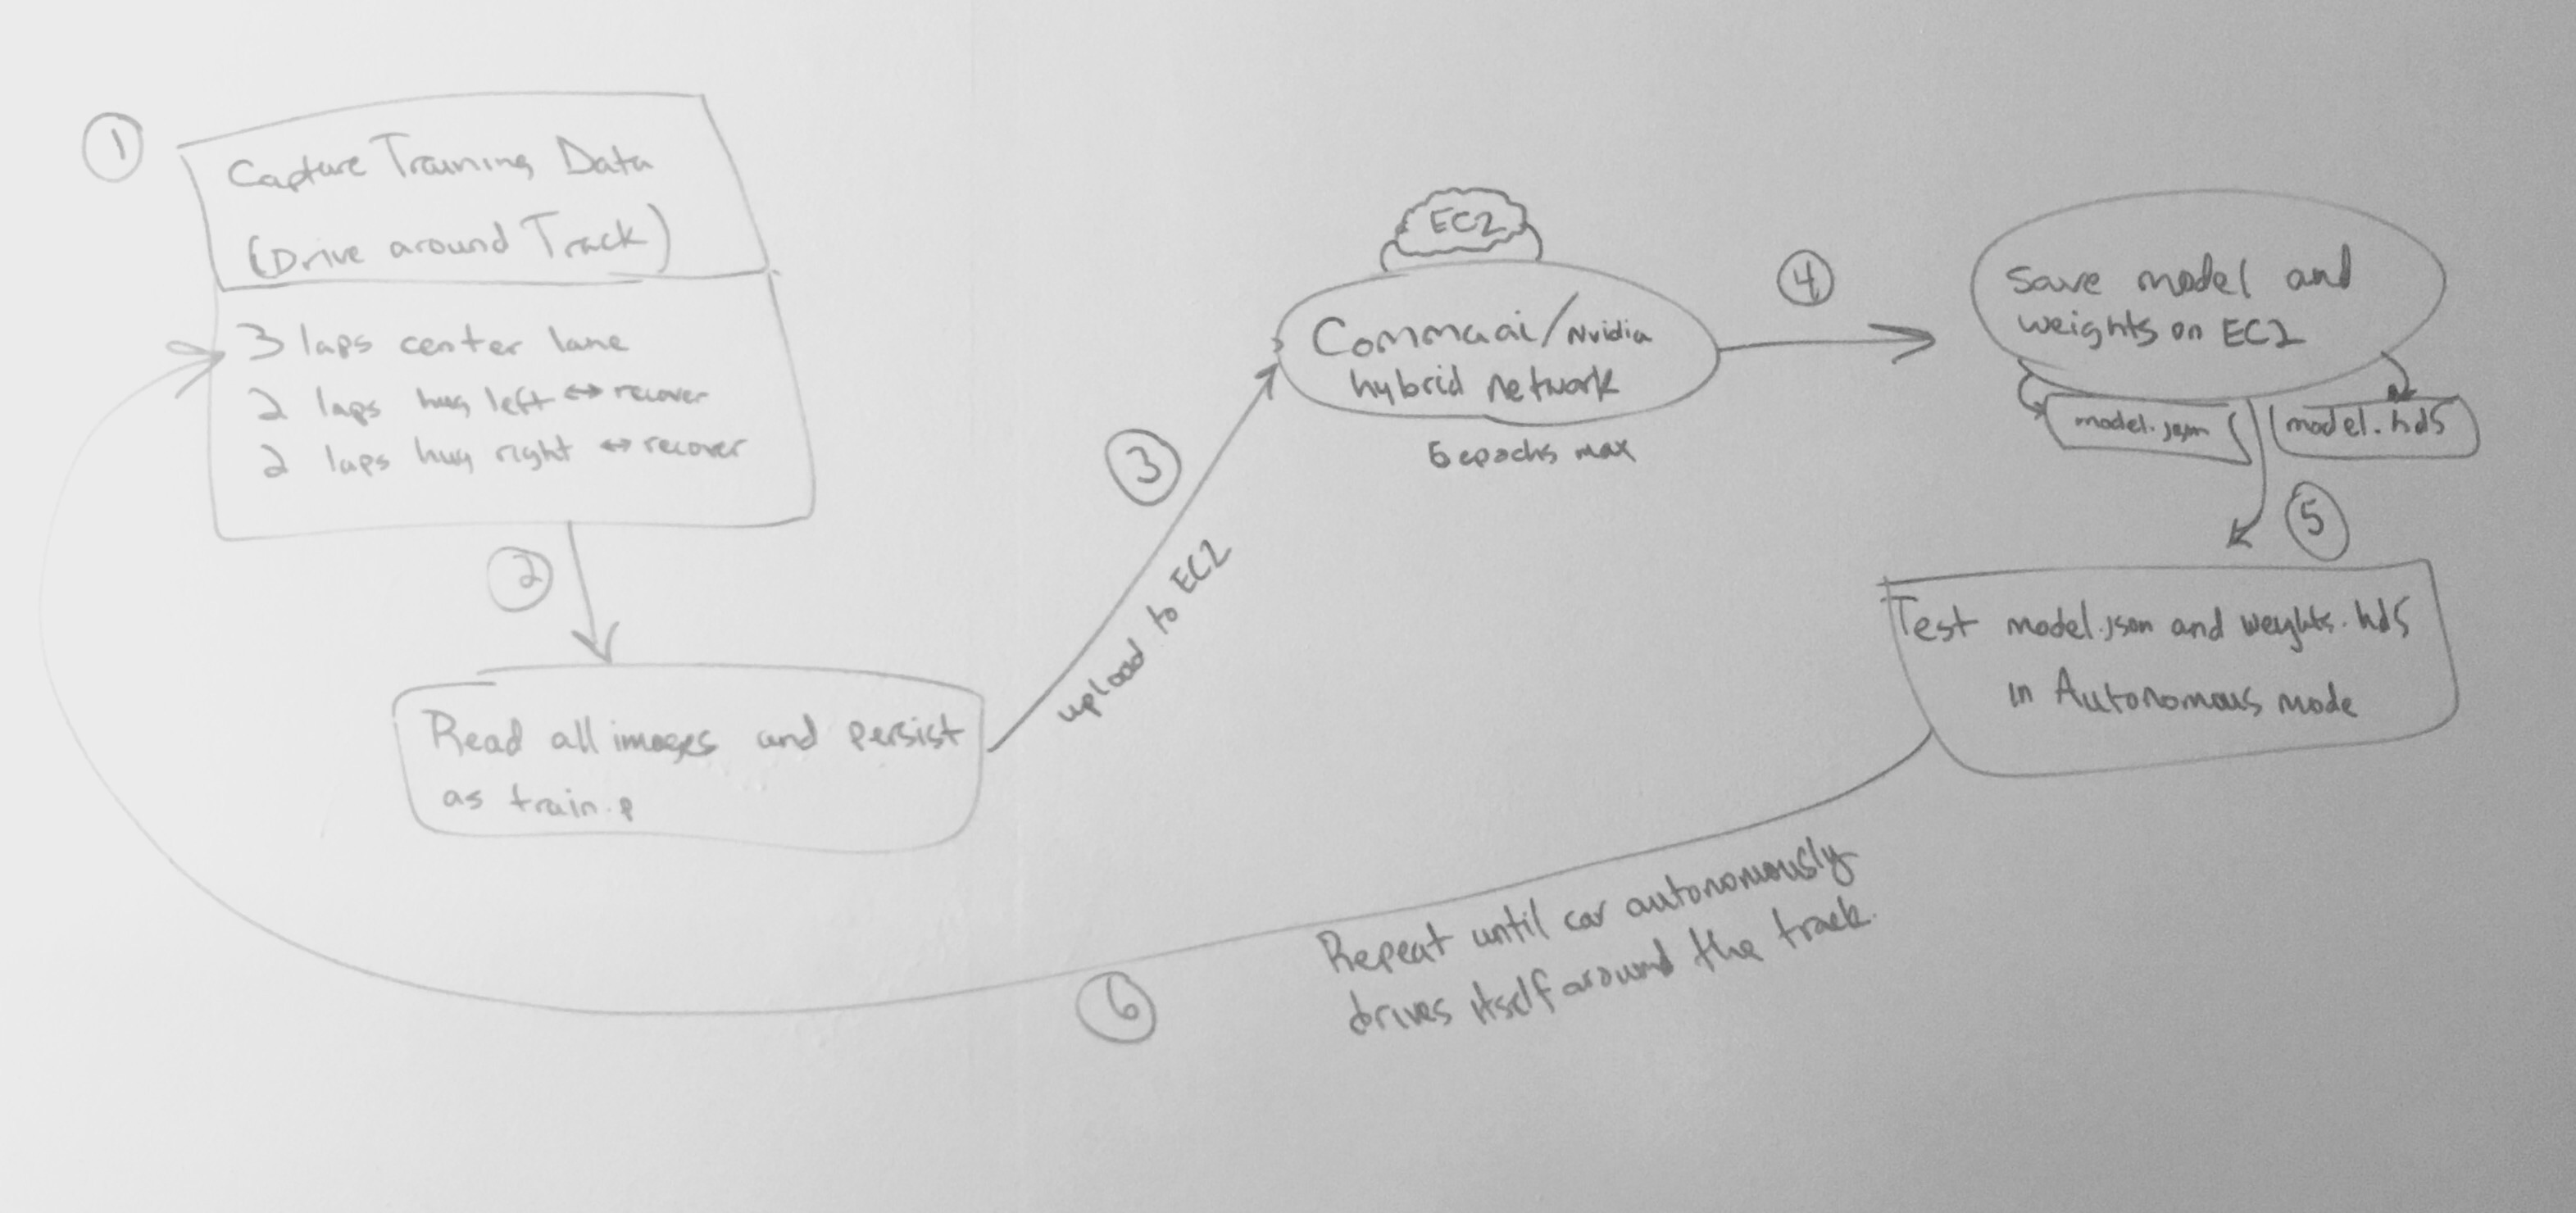 1
Capture Training Data
(Drive around Track)
3 laps center lane
2 laps hug left ↔ recover
2 laps hug right ↔ recover
2
Read all images and persist
as train.p
3
upload to EC2
EC2
Commaai/Nvidia
hybrid network
epochs max
4
save model and
weights on EC2
model.json
model.hd5
5
Test model.json and weights.hd5
in Autonomous mode
6
Repeat until car autonomously
drives itself around the track.